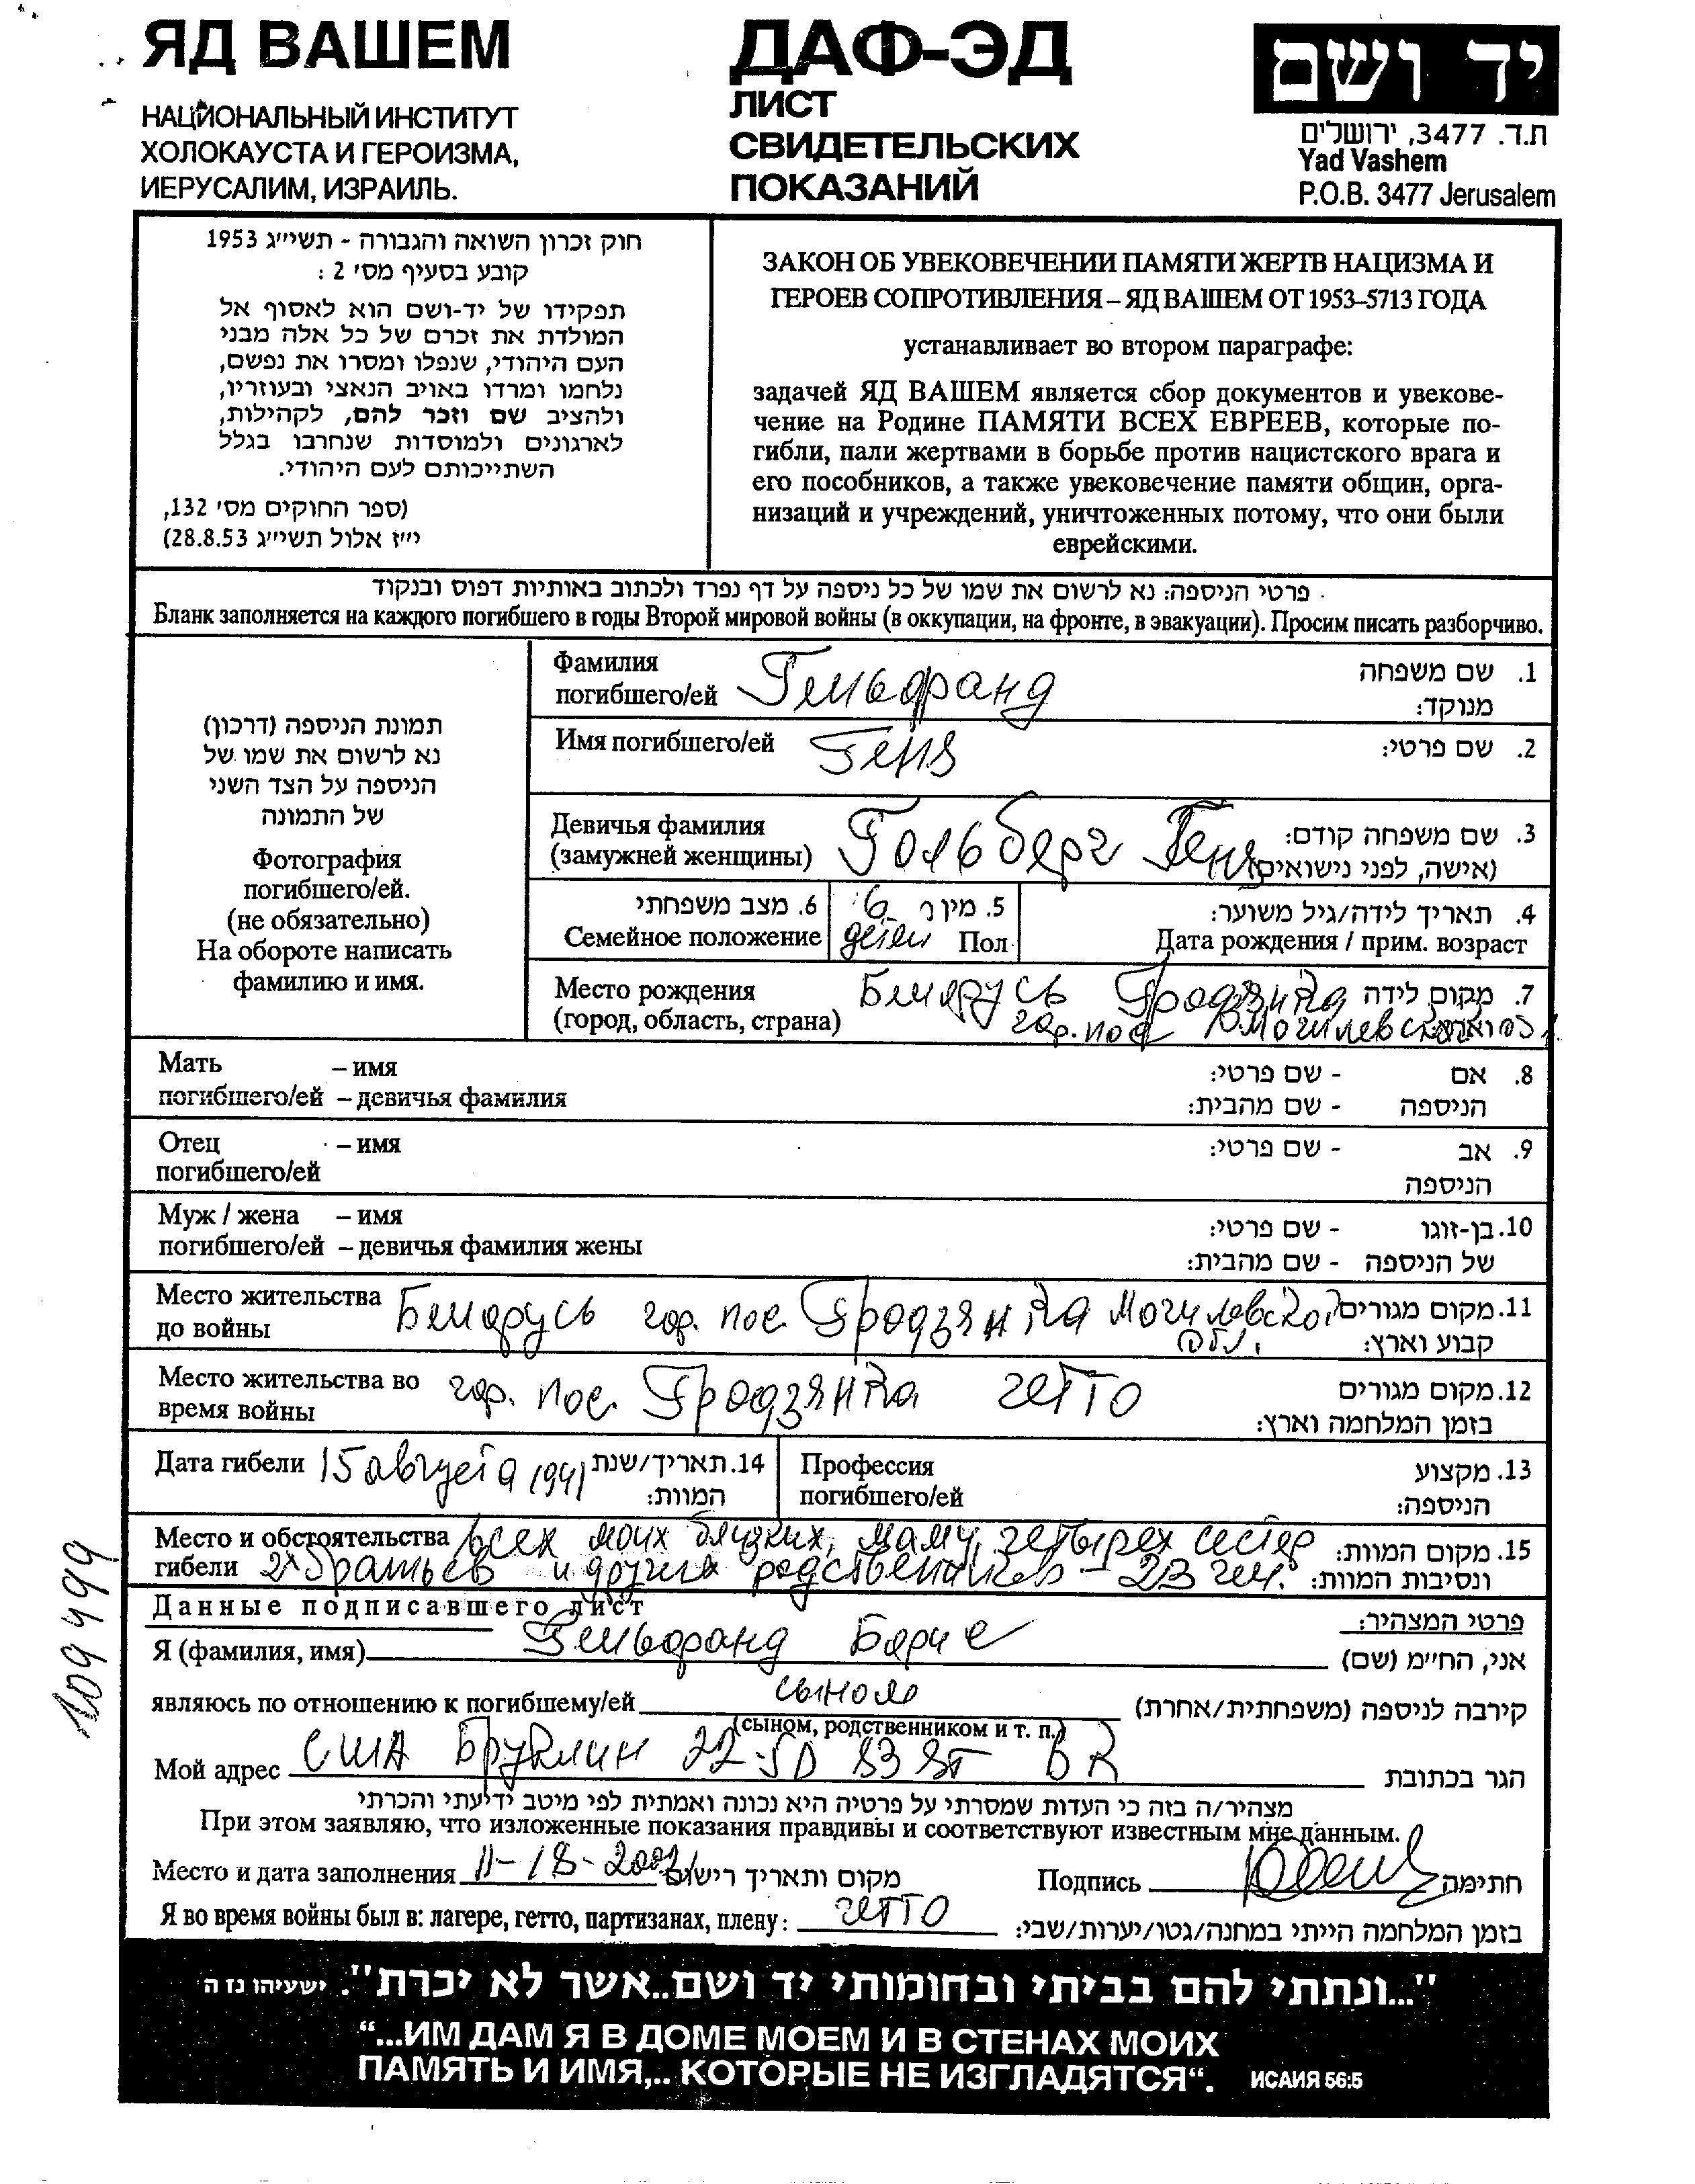 ЯД ВАШЕМ
НАЦИОНАЛЬНЫЙ ИНСТИТУТ
ХОЛОКАУСТА И ГЕРОИЗМА,
ИЕРУСАЛИМ, ИЗРАИЛЬ.
ДАФ-ЭД
ЛИСТ
СВИДЕТЕЛЬСКИХ
ПОКАЗАНИЙ
יד ושם
ת.ד. 3477, ירושלים
Yad Vashem
P.O.B. 3477 Jerusalem
חוק זכרון השואה והגבורה - תשי״ג 1953
קובע בסעיף מס׳ 2 :
תפקידו של יד-ושם הוא לאסוף אל
המולדת את זכרם של כל אלה מבני
העם היהודי, שנפלו ומסרו את נפשם,
נלחמו ומרדו באויב הנאצי ובעוזריו,
ולהציב שם וזכר להם, לקהילות,
לארגונים ולמוסדות שנחרבו בגלל
השתייכותם לעם היהודי.
(ספר החוקים מס׳ 132,
י״ז אלול תשי״ג 28.8.53)
ЗАКОН ОБ УВЕКОВЕЧЕНИИ ПАМЯТИ ЖЕРТВ НАЦИЗМА И
ГЕРОЕВ СОПРОТИВЛЕНИЯ – ЯД ВАШЕМ ОТ 1953–5713 ГОДА
устанавливает во втором параграфе:
задачей ЯД ВАШЕМ является сбор документов и увекове-
чение на Родине ПАМЯТИ ВСЕХ ЕВРЕЕВ, которые по-
гибли, пали жертвами в борьбе против нацистского врага и
его пособников, а также увековечение памяти общин, орга-
низаций и учреждений, уничтоженных потому, что они были
еврейскими.
פרטי הניספה: נא לרשום את שמו של כל ניספה על דף נפרד ולכתוב באותיות דפוס ובנקוד
Бланк заполняется на каждого погибшего в годы Второй мировой войны (в оккупации, на фронте, в эвакуации). Просим писать разборчиво.
תמונת הניספה (דרכון)
נא לרשום את שמו של
הניספה על הצד השני
של התמונה
Фотография
погибшего/ей.
(не обязательно)
На обороте написать
фамилию и имя.
Фамилия
погибшего/ей Гельфранд
1. שם משפחה
מנוקד:
Имя погибшего/ей Геня
2. שם פרטי:
Девичья фамилия
(замужней женщины) Гольберг Геня
3. שם משפחה קודם:
(אישה, לפני נישואים)
6. מצב משפחתי
Семейное положение
5. מין 6
детей Пол
4. תאריך לידה/גיל משוער:
Дата рождения / прим. возраст
Место рождения Беларусь Гродзянка
(город, область, страна) гор. пос Могилевской обл.
7. מקום לידה
Мать – имя
погибшего/ей – девичья фамилия
8. אם - שם פרטי:
הניספה - שם מהבית:
Отец – имя
погибшего/ей
9. אב - שם פרטי:
הניספה
Муж / жена – имя
погибшего/ей – девичья фамилия жены
10. בן-זוגו - שם פרטי:
של הניספה - שם מהבית:
Место жительства Беларусь гор. пос. Гродзянка Могилевской
до войны обл.
11. מקום מגורים
קבוע וארץ:
Место жительства во гор. пос. Гродзянка гетто
время войны
12. מקום מגורים
בזמן המלחמה וארץ:
Дата гибели 15 августа 1941
14. תאריך/שנת
המוות:
Профессия
погибшего/ей
13. מקצוע
הניספה:
Место и обстоятельства всех моих близких, маму, четырех сестер
гибели 2х братьев и других родственников – 23 чел.
15. מקום המוות:
ונסיבות המוות:
Данные подписавшего лист
פרטי המצהיר:
Я (фамилия, имя) Гельфранд Борис
אני, החי״מ (שם)
являюсь по отношению к погибшему/ей сыном
קירבה לניספה (משפחתית/אחרת)
(сыном, родственником и т. п.)
Мой адрес США Бруклин 22-50 83 ST BR
הגר בכתובת
מצהיר/ה בזה כי העדות שמסרתי על פרטיה היא נכונה ואמתית לפי מיטב ידיעתי והכרתי
При этом заявляю, что изложенные показания правдивы и соответствуют известным мне данным.
Место и дата заполнения 11-18-2001 מקום ותאריך רישום
Подпись חתימה
Я во время войны был в: лагере, гетто, партизанах, плену: гетто
בזמן המלחמה הייתי במחנה/גטו/יערות/שבי:
109499
"...ונתתי להם בביתי ובחומותי יד ושם..אשר לא יכרת". ישעיהו נז ה
“...ИМ ДАМ Я В ДОМЕ МОЕМ И В СТЕНАХ МОИХ
ПАМЯТЬ И ИМЯ,.. КОТОРЫЕ НЕ ИЗГЛАДЯТСЯ“. ИСАИЯ 56:5